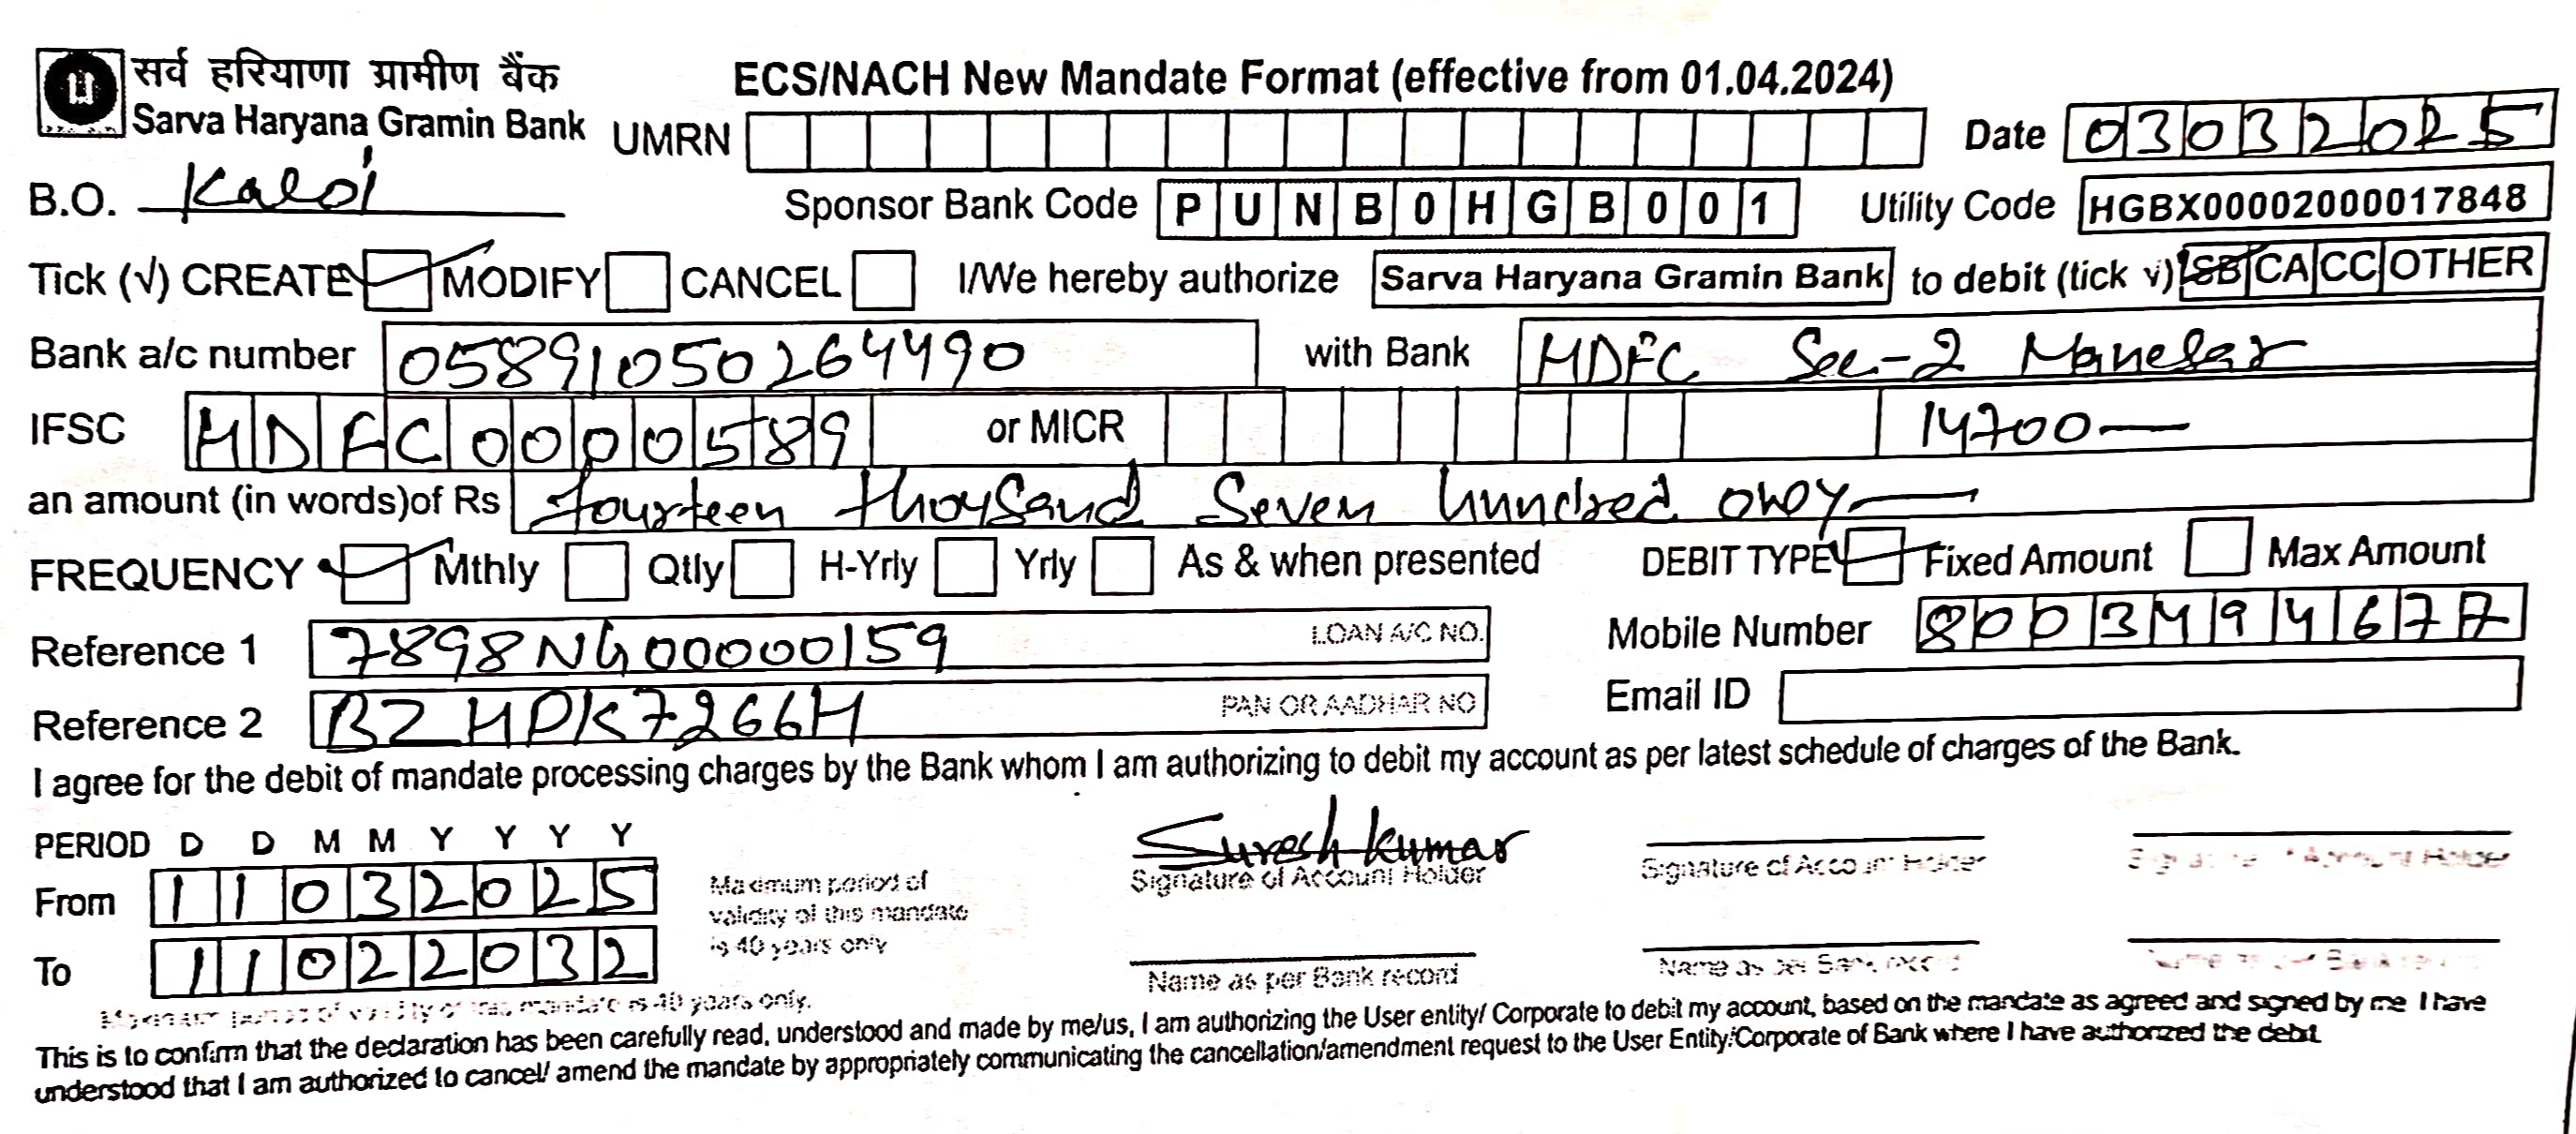 सर्व हरियाणा ग्रामीण बैंक
Sarva Haryana Gramin Bank
ECS/NACH New Mandate Format (effective from 01.04.2024)
UMRN Date 03032025
B.O. Kaloi Sponsor Bank Code PUNB0HGB001 Utility Code HGBX00002000017848
Tick (√) CREATE MODIFY CANCEL I/We hereby authorize Sarva Haryana Gramin Bank to debit (tick √) SB CA CC OTHER
Bank a/c number 05891050264490 with Bank HDFC Sec-2 Manesar
IFSC HDFC0000589 or MICR 14700—
an amount (in words)of Rs fourteen thousand Seven hundred only—
FREQUENCY Mthly Qtly H-Yrly Yrly As & when presented DEBIT TYPE Fixed Amount Max Amount
Reference 1 7898NG00000159 LOAN A/C NO. Mobile Number 8003494677
Reference 2 BZHPK7266H PAN OR AADHAR NO Email ID
I agree for the debit of mandate processing charges by the Bank whom I am authorizing to debit my account as per latest schedule of charges of the Bank.
PERIOD D D M M Y Y Y Y
From 11032025
To 11022032
Maximum period of
validity of this mandate
is 40 years only
Suresh kumar
Signature of Account Holder Signature of Account Holder Signature of Account Holder
Name as per Bank record Name as per Bank record Name as per Bank record
Maximum period of validity of this mandate is 40 years only.
This is to confirm that the declaration has been carefully read, understood and made by me/us, I am authorizing the User entity/ Corporate to debit my account, based on the mandate as agreed and signed by me I have
understood that I am authorized to cancel/ amend the mandate by appropriately communicating the cancellation/amendment request to the User Entity/Corporate of Bank where I have authorized the debit